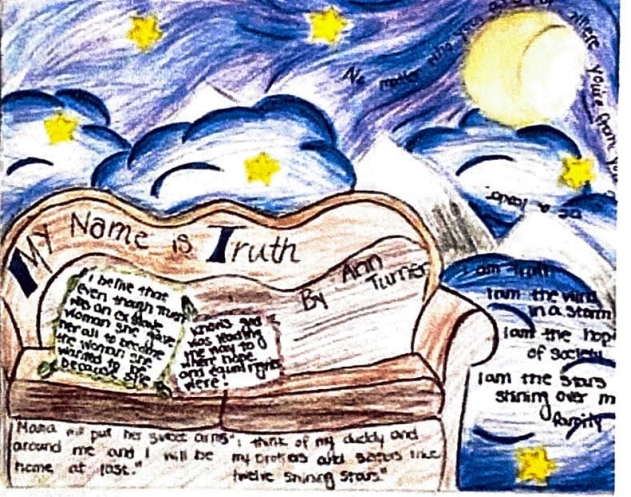 No matter who you are or where you're from you
be a leader.
My Name is Truth
By Ann
Turner
"I belive that
even though Truth
was an ex slave
woman she gave
her all to become
the woman she
wanted to be
because she
knows god
was leading
the way to
where hope
and equal rights
were!
I am truth
I am the wind
in a storm
I am the hope
of society
I am the stars
shining over m
family
Mama will put her sweet arms
around me and I will be
home at last."
"I think of my daddy and
my brothers and sisters like
twelve shining stars"